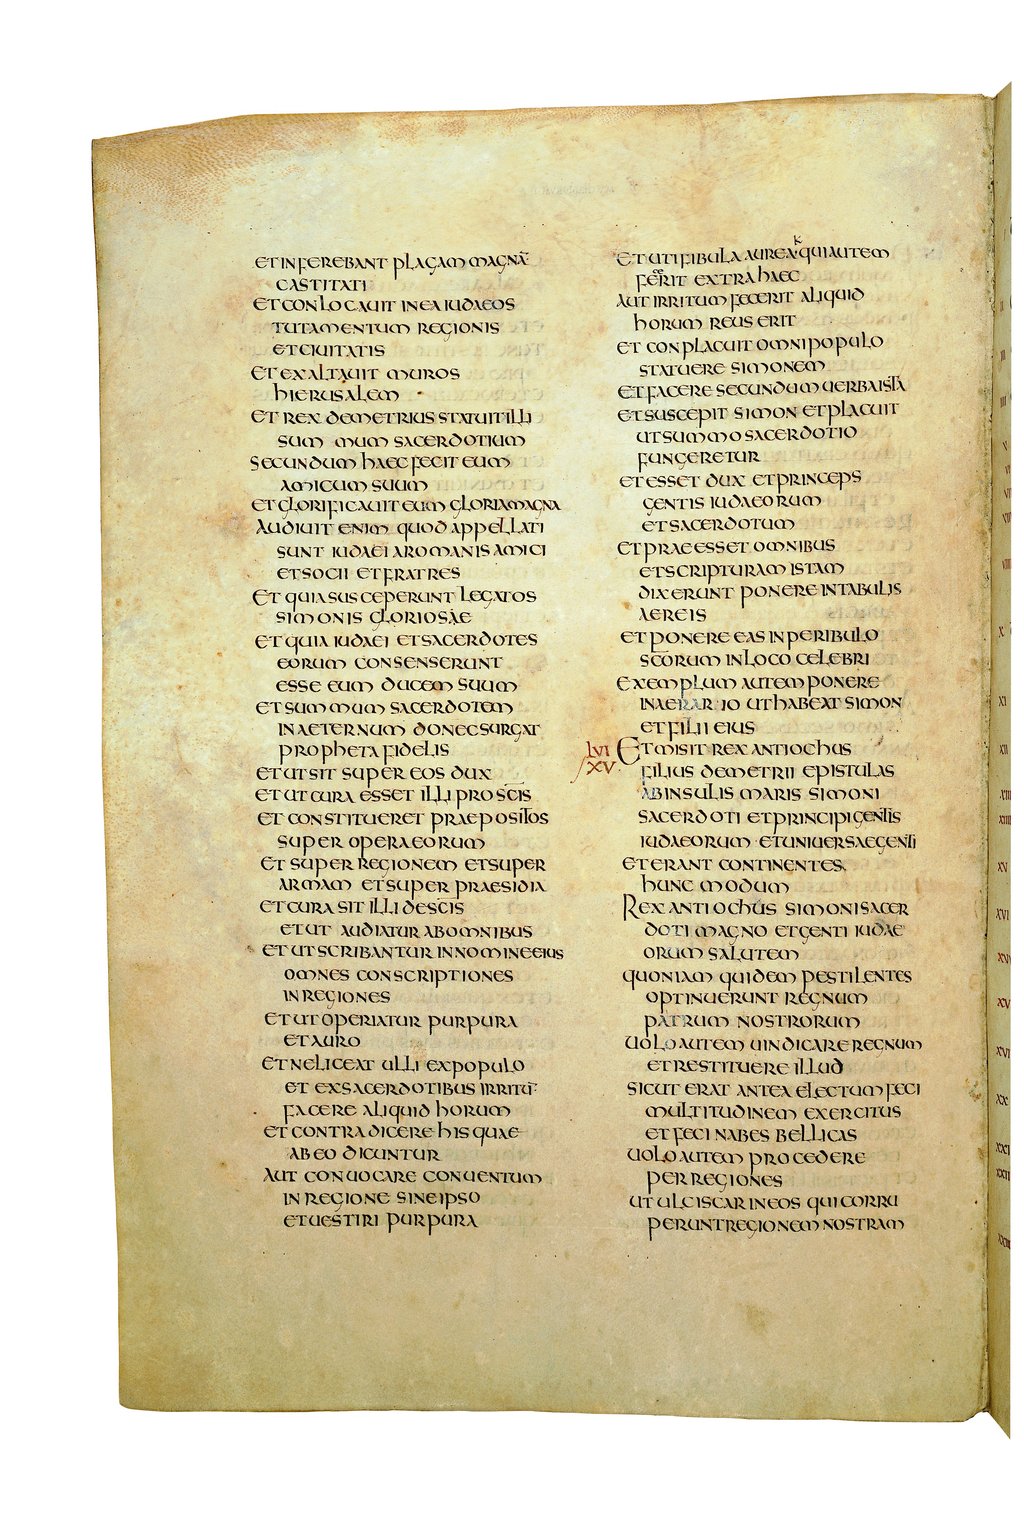 ET INFEREBANT PLAGAM MAGNĀ
CASTITATI
ET CONLOCAUIT IN EA IUDAEOS
TUTAMENTUM REGIONIS
ET CIUITATIS
ET EXALTAUIT MUROS
HIERUSALEM
ET REX DEMETRIUS STATUIT ILLI
SUM MUM SACERDOTIUM
SECUNDUM HAEC FECIT EUM
AMICUM SUUM
ET GLORIFICAUIT EUM GLORIA MAGNA
AUDIUIT ENIM QUOD APPELLATI
SUNT IUDAEI A ROMANIS AMICI
ET SOCII ET FRATRES
ET QUIA SUSCEPERUNT LEGATOS
SIMONIS GLORIOSAE
ET QUIA IUDAEI ET SACERDOTES
EORUM CONSENSERUNT
ESSE EUM DUCEM SUUM
ET SUMMUM SACERDOTEM
IN AETERNUM DONEC SURGAT
PROPHETA FIDELIS
ET UT SIT SUPER EOS DUX
ET UT CURA ESSET ILLI PRO SC̄IS
ET CONSTITUERET PRAEPOSITOS
SUPER OPERA EORUM
ET SUPER REGIONEM ET SUPER
ARMAM ET SUPER PRAESIDIA
ET CURA SIT ILLI DE SC̄IS
ET UT AUDIATUR AB OMNIBUS
ET UT SCRIBANTUR IN NOMINE EIUS
OMNES CONSCRIPTIONES
IN REGIONES
ET UT OPERIATUR PURPURA
ET AURO
ET NE LICEAT ULLI EX POPULO
ET EX SACERDOTIBUS IRRITŪ
FACERE ALIQUID HORUM
ET CONTRADICERE HIS QUAE
AB EO DICUNTUR
AUT CONUOCARE CONUENTUM
IN REGIONE SINE IPSO
ET UESTIRI PURPURA
ET UTI FIBULA AUREA QUI AUTEM
FECERIT EXTRA HAEC
AUT IRRITUM FECERIT ALIQUID
HORUM REUS ERIT
ET CONPLACUIT OMNI POPULO
STATUERE SIMONEM
ET FACERE SECUNDUM UERBA ISTA
ET SUSCEPIT SIMON ET PLACUIT
UT SUMMO SACERDOTIO
FUNGERETUR
ET ESSET DUX ET PRINCEPS
GENTIS IUDAEORUM
ET SACERDOTUM
ET PRAEESSET OMNIBUS
ET SCRIPTURAM ISTAM
DIXERUNT PONERE IN TABULIS
AEREIS
ET PONERE EAS IN PERIBULO
SC̄ORUM IN LOCO CELEBRI
EXEMPLUM AUTEM PONERE
IN AERARIO UT HABEAT SIMON
ET FILII EIUS
LVI ET MISIT REX ANTIOCHUS
XV FILIUS DEMETRII EPISTULAS
AB INSULIS MARIS SIMONI
SACERDOTI ET PRINCIPI GENTIS
IUDAEORUM ET UNIUERSAE GENTI
ET ERANT CONTINENTES
HUNC MODUM
REX ANTIOCHUS SIMONI SACER
DOTI MAGNO ET GENTI IUDAE
ORUM SALUTEM
QUONIAM QUIDEM PESTILENTES
OPTINUERUNT REGNUM
PATRUM NOSTRORUM
UOLO AUTEM UINDICARE REGNUM
ET RESTITUERE ILLUD
SICUT ERAT ANTEA ELECTUM FECI
MULTITUDINEM EXERCITUS
ET FECI NABES BELLICAS
UOLO AUTEM PROCEDERE
PER REGIONES
UT ULCISCAR IN EOS QUI CORRU
PERUNT REGIONEM NOSTRAM